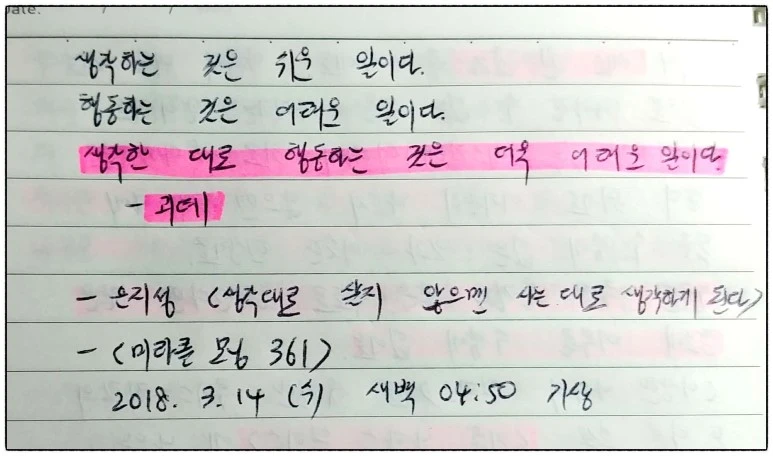 Date.
생각하는 것은 쉬운 일이다.
행동하는 것은 어려운 일이다.
생각한 대로 행동하는 것은 더욱 어려운 일이다
- 괴테
- 은지성 (생각대로 살지 않으면 사는 대로 생각하게 된다)
- (미라클 모닝 361)
2018. 3. 14 (수) 새벽 04:50 기상